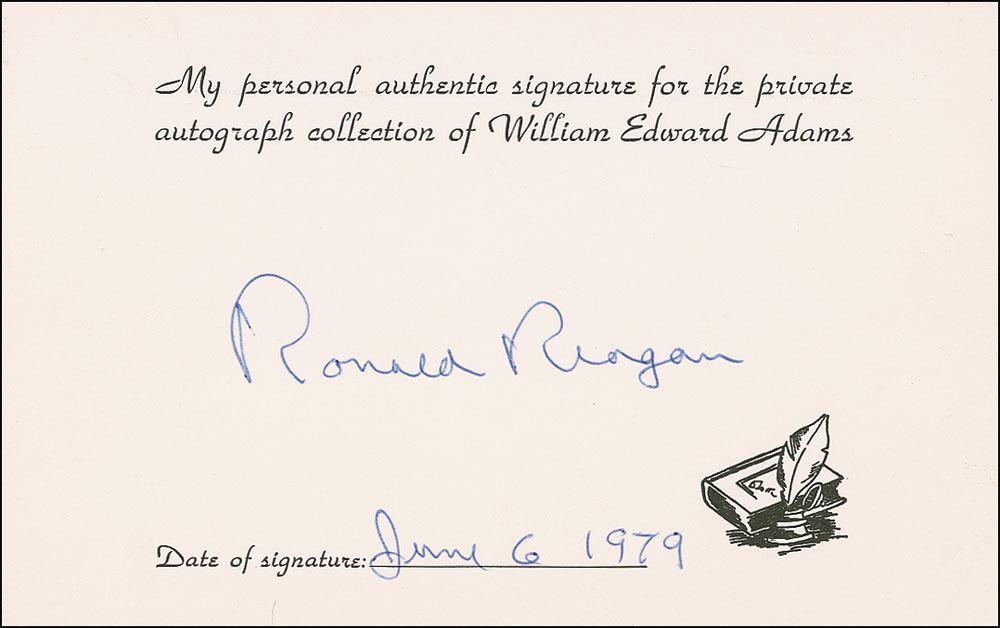 My personal authentic signature for the private
autograph collection of William Edward Adams
Ronald Reagan
Date of signature: June 6 1979